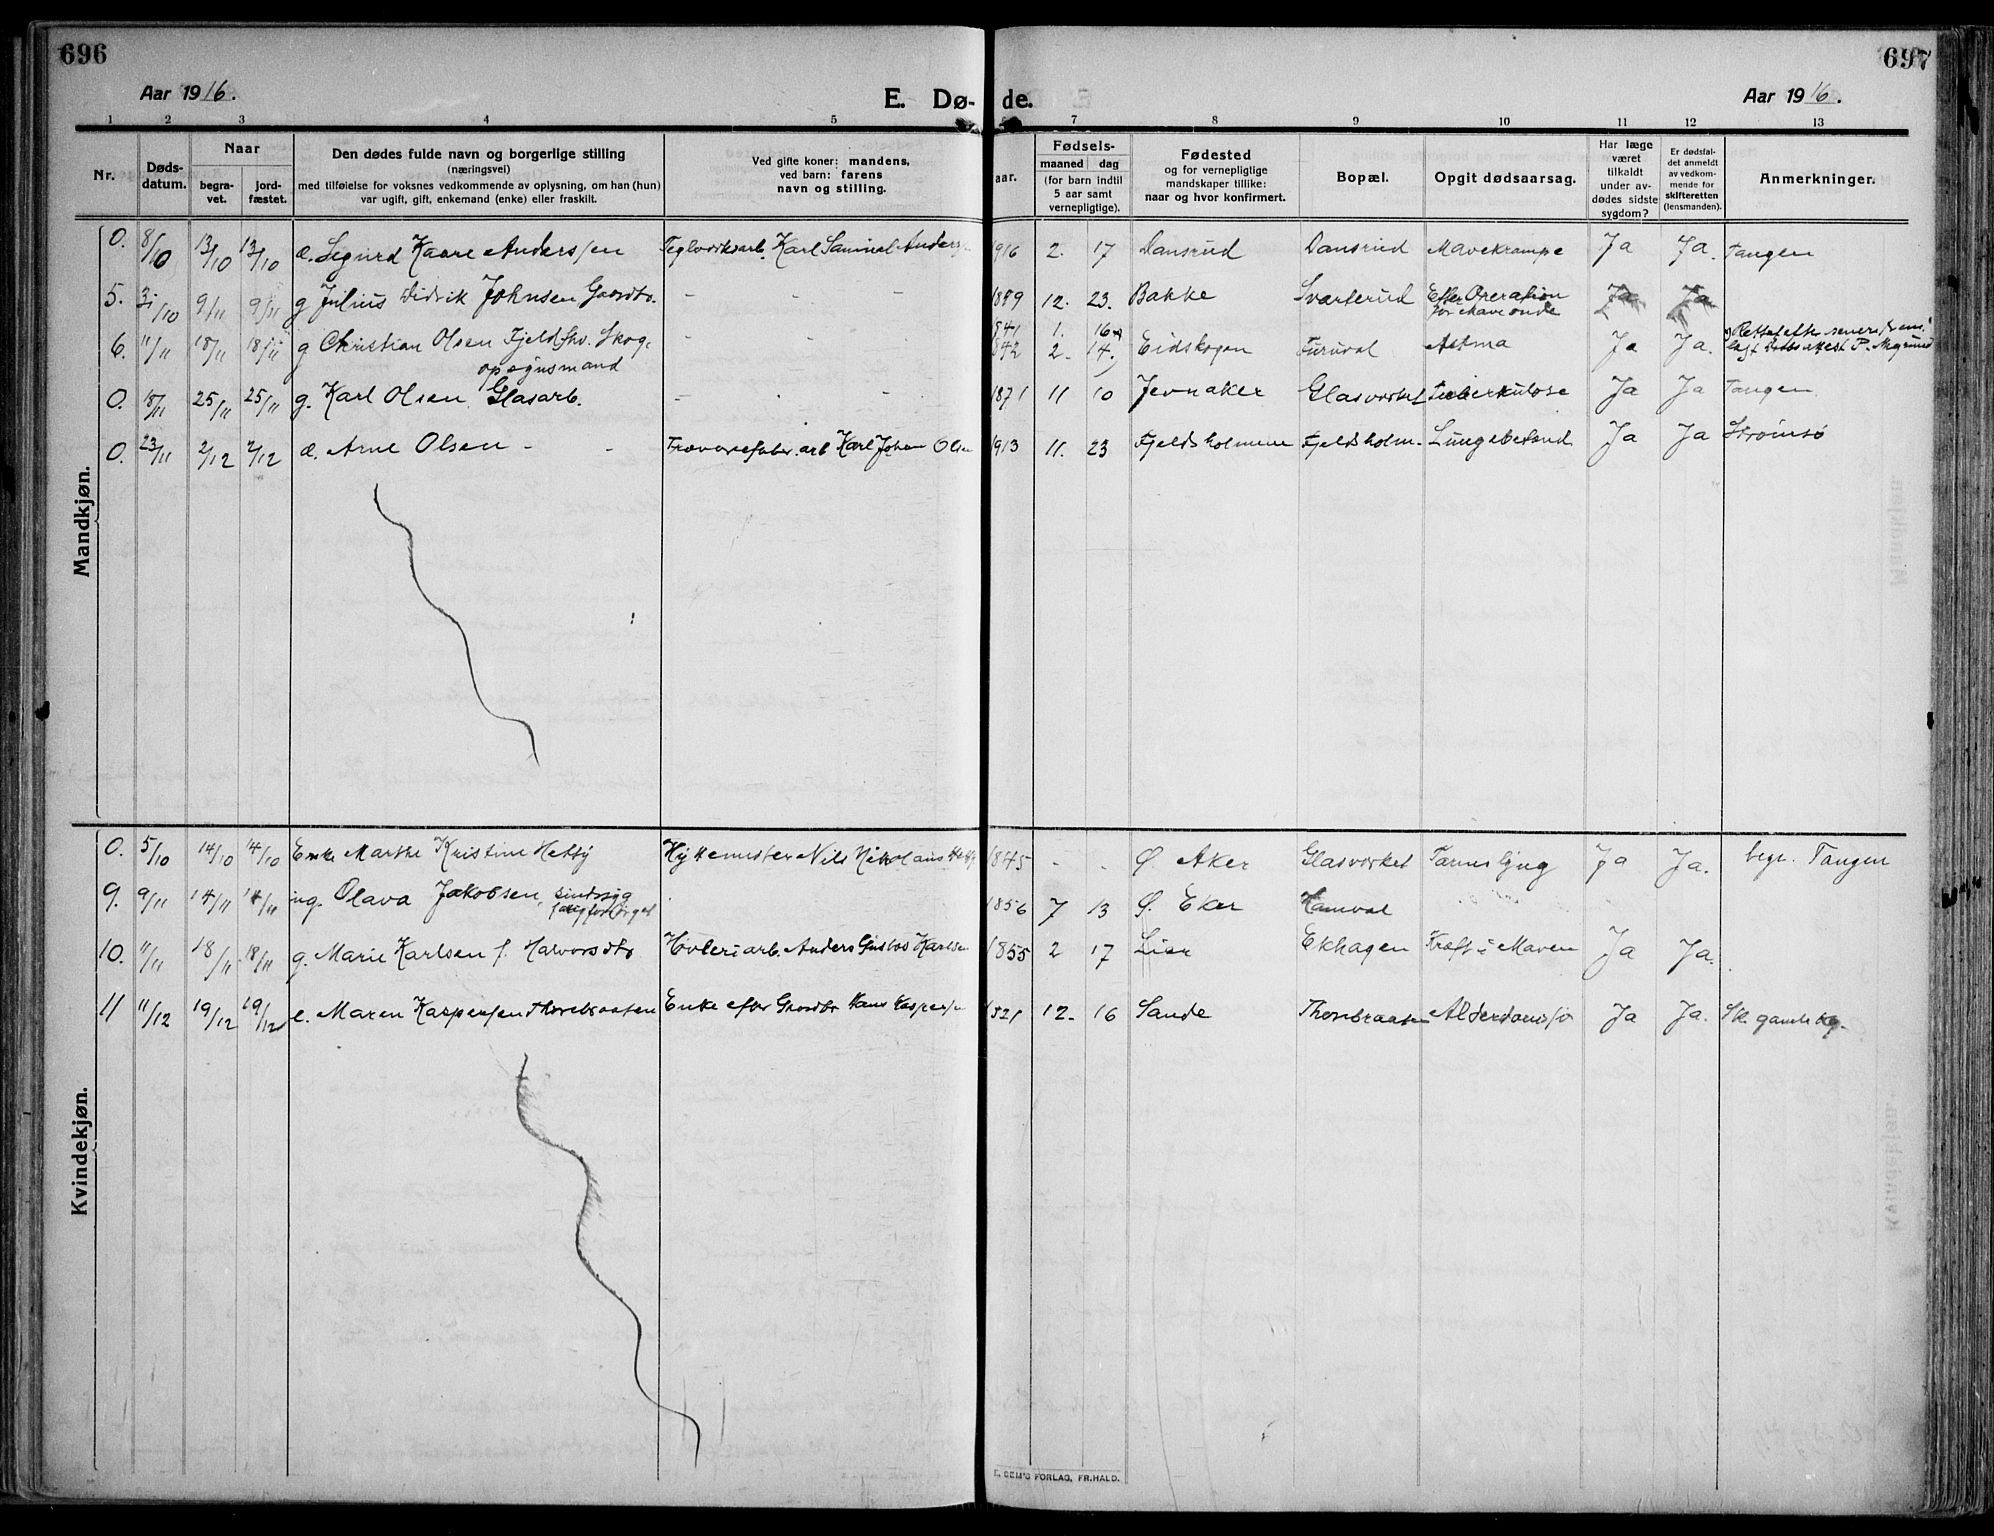 696
697
Aar 1916.
E. Dø-
de.
Aar 1916.
1 2 3 4 5 6 7 8 9 10 11 12 13
Nr.
Døds-
datum.
Naar
begra-
vet.
jord-
fæstet.
Den dødes fulde navn og borgerlige stilling
(næringsvei)
med tilføielse for voksnes vedkommende av oplysning, om han (hun)
var ugift, gift, enkemand (enke) eller fraskilt.
Ved gifte koner: mandens,
ved barn: farens
navn og stilling.
aar.
Fødsels-
maaned dag
(for barn indtil
5 aar samt
vernepligtige).
Fødested
og for vernepligtige
mandskaper tillike:
naar og hvor konfirmert.
Bopæl.
Opgit dødsaarsag.
Har læge
været
tilkaldt
under av-
dødes sidste
sygdom?
Er dødsfal-
det anmeldt
av vedkom-
mende for
skifteretten
(lensmanden).
Anmerkninger.
Mandkjøn.
0. 8/10 13/10 13/10 d. Sigurd Kaare Anderssen Teglverksarb. Karl Samuel Anders 1916 2. 17 Dansrud Dansrud Mavekrampe Ja Ja. Tangen
5. 31/10 9/11 9/11 g Julius Didrik Johnsen Gaardbr. - - - 12. 23. Bakke Svarterud Efter Operation
for Mave onde Ja Ja
6. 11/11 18/11 18/11 g Christian Olsen Fjeld Skog- 1841 1. 16
opsynsmand 1842 2. 14. Eidskogen Furuval Astma Ja Ja.
0. 18/11 25/11 25/11 g. Karl Olsen Glasarb. - - - 1871 11 10 Jevnaker Glasverket Tuberkulose Ja Ja Tangen
0. 23/11 2/12 2/12 d. Arne Olsen - - arb Karl Johan Olsen 1913 11. 23 Fjeldsholmene Fjeldsholm. Lungebetænd Ja Ja Strømsø
Kvindekjøn.
0. 5/10 14/10 14/10 Enke Marthe Kristine Hettÿ Hÿttemester Nils Nikolaus 1845 - - Ø Aker Glasverket Tarmslÿng Ja Ja. begr. Tangen
9. 9/11 14/11 14/11 ug. Olava Jakobsen, sindssyg
fattigforsørget 1856 7 13 Ø. Eker Hamval
10. 11/11 18/11 18/11 g. Marie Karlsen f. Halvorsdtr Høvleriarb. Anders Gustav Karlsen 1855 2 17 Lier Ekhagen Kræft i Maven Ja Ja.
11 11/12 19/12 19/12 e. Maren Kaspersen Thorebraaten Enke efter Gaardbr Hans Kaspersen 1821 12. 16 Sande Thorebraaten Alderdomssjø Ja Ja. Sk. gamle kg.
E. SEM'S FORLAG, FR.HALD.